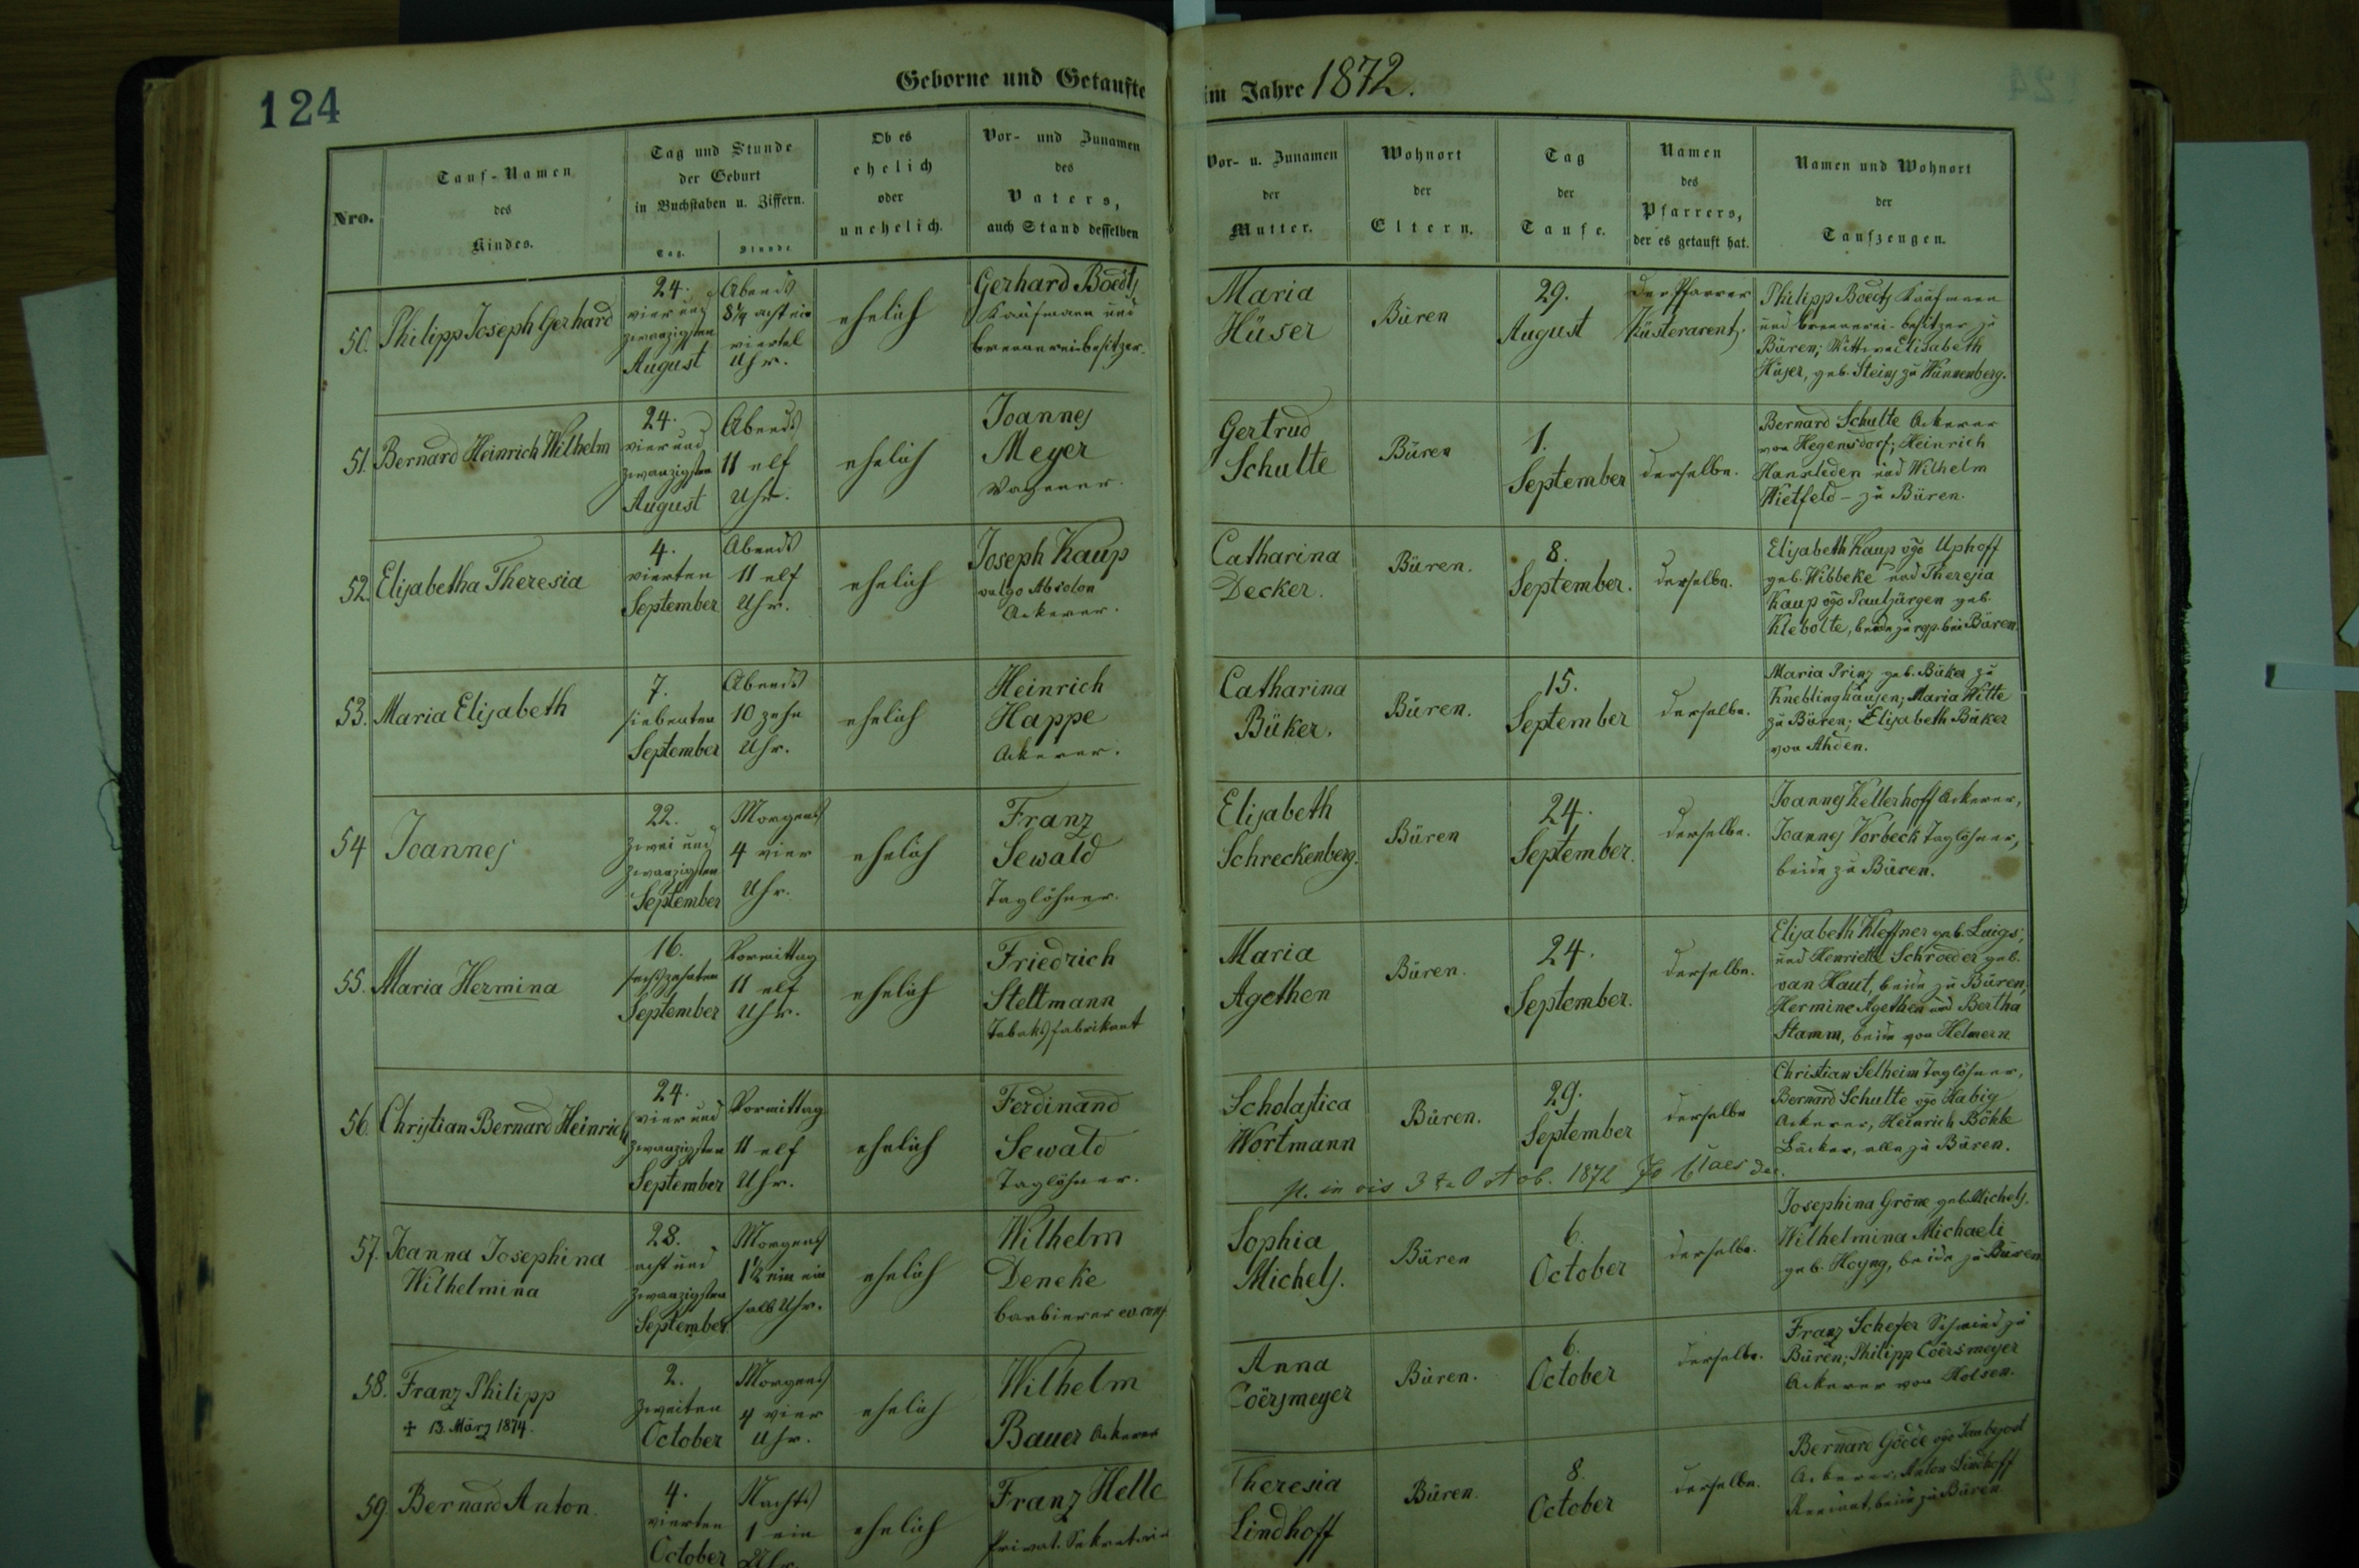 124
Geborne und Getaufte im Jahre 1872.
Nro.
Tauf-Namen
des
Kindes.
Tag und Stunde
der Geburt
in Buchstaben u. Ziffern.
Tag.
Stunde.
Ob es
ehelich
oder
unehelich.
Vor- und Zunamen
des
Vaters,
auch Stand desselben
Vor- u. Zunamen
der
Mutter.
Wohnort
der
Eltern.
Tag
der
Taufe.
Namen
des
Pfarrers,
der es getauft hat.
Namen und Wohnort
der
Taufzeugen.
50.
Philipp Joseph Gerhard
24.
vier und
zwanzigsten
August
Abends
8¼ acht ein
viertel
Uhr.
ehelich
Gerhard Boedts
Kaufmann und
brennereibesitzer.
Maria
Hüser
Büren
29.
August
der Pfarrer
Küsterarent.
Philipp Boedts Kaufmann
und brennerei-besitzer zu
Büren; Wittwe Elisabeth
Hüser, geb. Steins zu Wünnenberg.
51.
Bernard Heinrich Wilhelm
24.
vier und
zwanzigsten
August
Abends
11 elf
Uhr.
ehelich
Joannes
Meyer
Wagener.
Gertrud
Schulte
Büren
1.
September
derselbe.
Bernard Schulte Ackerer
von Hegensdorf; Heinrich
Hansleden und Wilhelm
Wietfeld - zu Büren.
52.
Elisabetha Theresia
4.
vierten
September
Abends
11 elf
Uhr.
ehelich
Joseph Kaup
vulgo Absolon
Ackerer.
Catharina
Decker.
Büren.
8.
September.
derselbe.
Elisabeth Kaup vgo Uphoff
geb. Wibbeke und Theresia
Kaup vgo Pauljürgen geb.
Klebolte, beide zu bei Büren.
53.
Maria Elisabeth
7.
siebenten
September
Abends
10 zehn
Uhr.
ehelich
Heinrich
Happe
Ackerer.
Catharina
Büker.
Büren.
15.
September
derselbe.
Maria Prinz geb. Büker zu
Kneblinghausen; Maria Witte
zu Büren; Elisabeth Büker
von Ahden.
54
Joannes
22.
zwei und
zwanzigsten
September
Morgens
4 vier
Uhr.
ehelich
Franz
Sewald
Taglöhner.
Elisabeth
Schreckenberg.
Büren
24.
September.
derselbe.
Joannes Kellerhoff Ackerer,
Joannes Vorbeck Taglöhner,
beide zu Büren.
55.
Maria Hermina
16.
sechszehnten
September
Vormittag
11 elf
Uhr.
ehelich
Friedrich
Steltmann
Tabaksfabrikant
Maria
Agethen
Büren.
24.
September.
derselbe.
Elisabeth Kleffner geb. Luigs,
und Henriette Schroeder geb.
van Haut, beide zu Büren,
Hermine Agethen und Bertha
Stamm, beide von Helmern.
56.
Christian Bernard Heinrich
24.
vier und
zwanzigsten
September
Vormittag
11 elf
Uhr.
ehelich
Ferdinand
Sewald
Taglöhner.
Scholastica
Wortmann
Büren.
29.
September
derselbe
Christian Selheim Taglöhner,
Bernard Schulte vgo Habig
Ackerer, Heinrich Böhle
Bäcker, alle zu Büren.
3 1872
57.
Joanna Josephina
Wilhelmina
28.
acht und
zwanzigsten
September
Morgens
1½ ein ein
halb Uhr.
ehelich
Wilhelm
Deneke
barbierer ev. conf.
Sophia
Michels.
Büren
6.
October
derselbe.
Josephina Gröne geb. Michels.
Wilhelmina Michaeli
geb. Hoyng, beide zu Büren
58.
Franz Philipp
+ 13. März 1874.
2.
zweiten
October
Morgens
4 vier
Uhr.
ehelich
Wilhelm
Bauer Ackerer
Anna
Coërsmeyer
Büren.
6.
October
derselbe.
Franz Schefer Schmied zu
Büren; Philipp Coërsmeyer
Ackerer von Holsen.
59.
Bernard Anton.
4.
vierten
October
Nachts
1 ein
Uhr.
ehelich
Franz Helle
Privat. Sekretair
Theresia
Lindhoff
Büren.
8.
October
derselbe.
Bernard Gödde vgo
Ackerer, Anton Lindhoff
beide zu Büren.